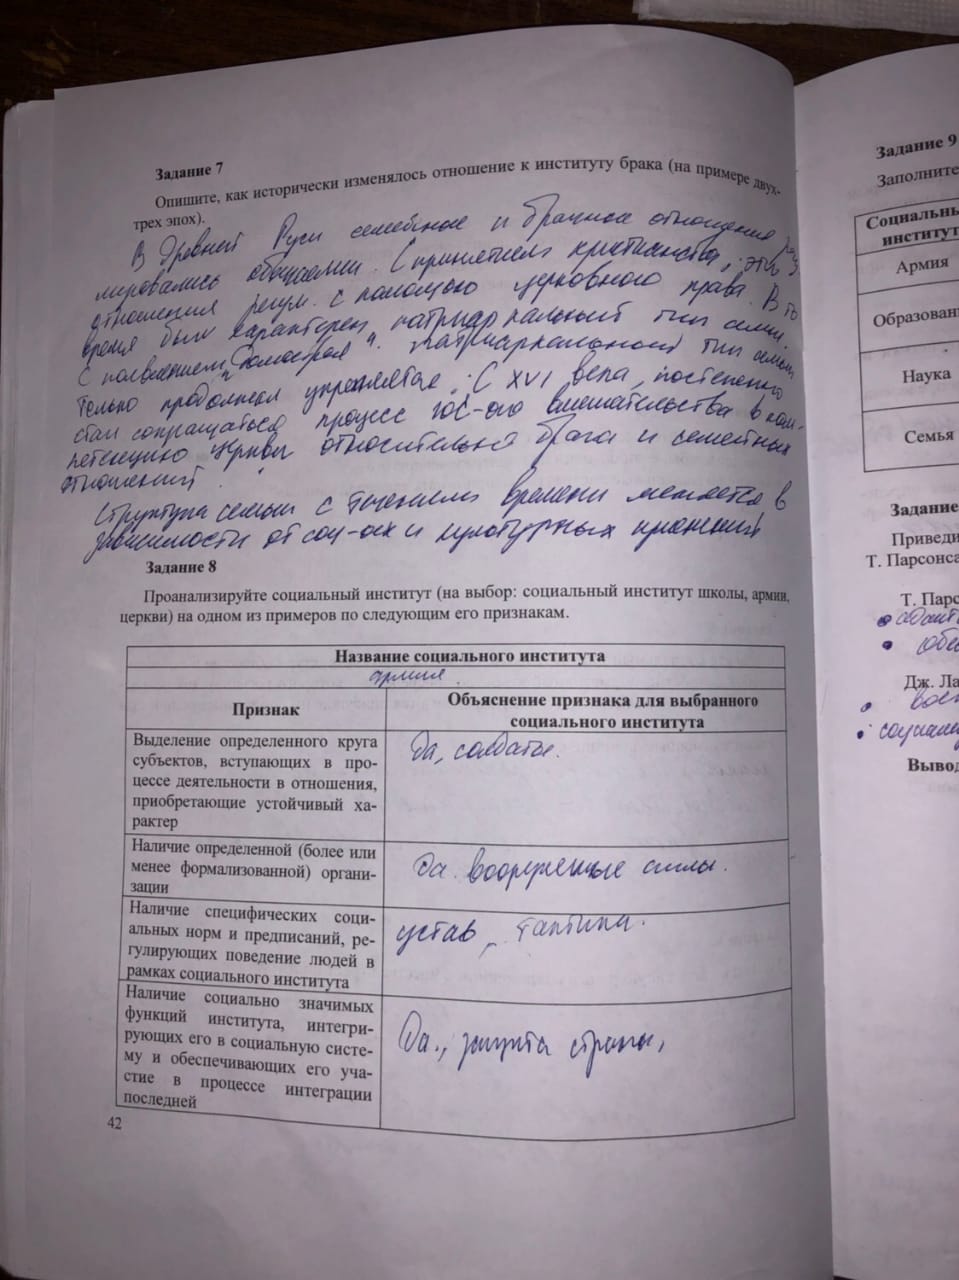 Задание 7
Опишите, как исторически изменялось отношение к институту брака (на примере двух-
трех эпох).
В Древней Руси семейные и брачные отношения регу
лировались обычаями. С принятием христианства, эти
отношения регул. с помощью церковного права. В то
время был характерен патриархальный тип семьи.
С появлением "Домостроя" патриархальный тип семьи
только продолжал укрепляться. С XVI века, постепенно
стал сокращаться процесс гос-ого вмешательства в ком-
петенцию церкви относительно брака и семейных
отношений.
Структура семьи с течением времени меняется в
зависимости от соц-ых и культурных
Задание 8
Проанализируйте социальный институт (на выбор: социальный институт школы, армии,
церкви) на одном из примеров по следующим его признакам.
Название социального института
армия.
Признак
Объяснение признака для выбранного
социального института
Выделение определенного круга
субъектов, вступающих в про-
цессе деятельности в отношения,
приобретающие устойчивый ха-
рактер
Да, солдаты.
Наличие определенной (более или
менее формализованной) органи-
зации
Да. вооруженные силы.
Наличие специфических соци-
альных норм и предписаний, ре-
гулирующих поведение людей в
рамках социального института
устав, тактики.
Наличие социально значимых
функций института, интегри-
рующих его в социальную систе-
му и обеспечивающих его уча-
стие в процессе интеграции
последней
Да., защита страны,
42
Задание 9
Заполните
Социальны
институт
Армия
Образовани
Наука
Семья
Задание
Приведи
Т. Парсонса
Т. Парс
• адапт
• обе
Дж. Ла
• восп
• социали
Вывод